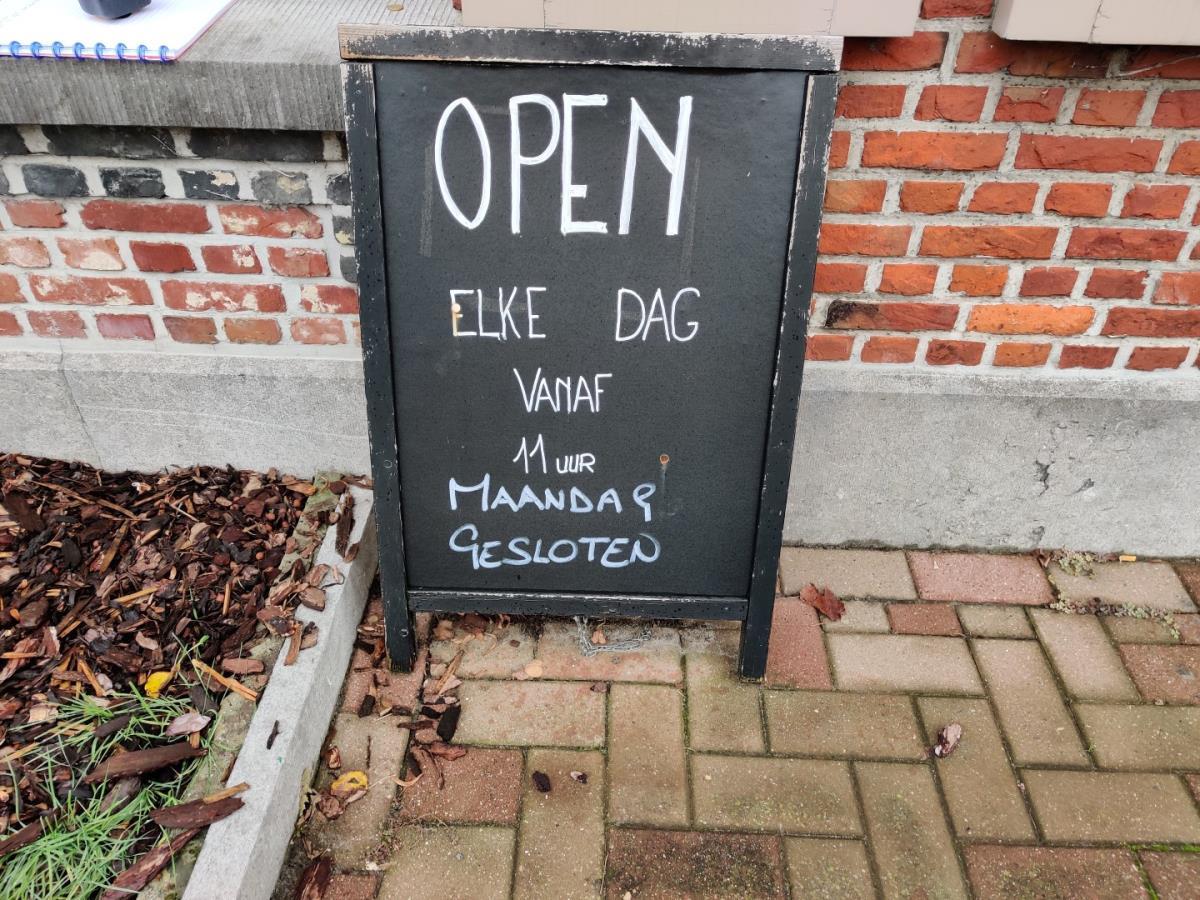 OPEN
ELKE DAG
VANAF
11 UUR
MAANDAG
GESLOTEN